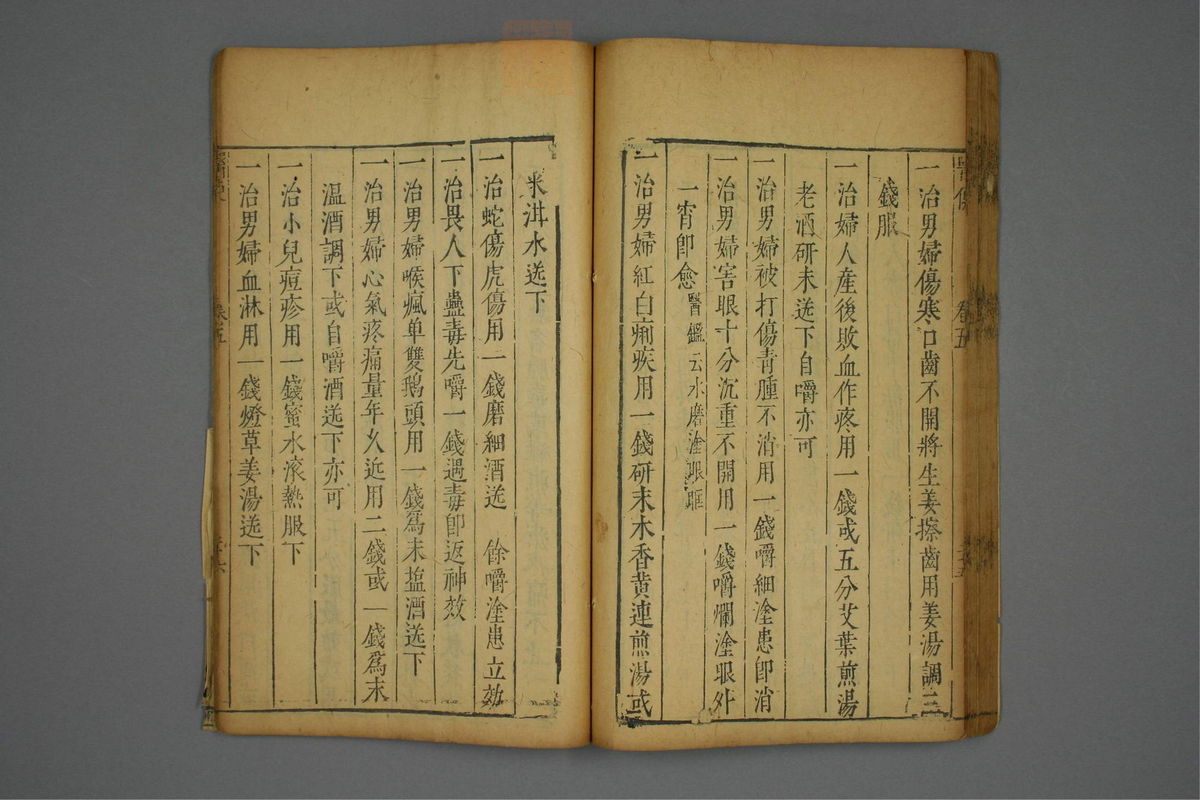 一治男婦傷寒口齒不開將生姜擦齒用姜湯調二
錢服
一治婦人産後敗血作疼用一錢或五分艾葉煎湯
老酒研末送下自嚼亦可
一治男婦被打傷青腫不消用一錢嚼細塗患卽消
一治男婦害眼十分沉重不開用一錢嚼爛塗眼外
一宵卽愈醫鑑云水磨塗眼眶
一治男婦紅白痢疾用一錢研末木香黄連煎湯或
米泔水送下
一治蛇傷虎傷用一錢磨細酒送 餘嚼塗患立効
一治畏人下蠱毒先嚼一錢遇毒卽返神效
一治男婦喉瘋单雙鵝頭用一錢爲末塩酒送下
一治男婦心氣疼痛量年久近用二錢或一錢爲末
温酒調下或自嚼酒送下亦可
一治小兒痘疹用一錢蜜水滚熱服下
一治男婦血淋用一錢燈草姜湯送下